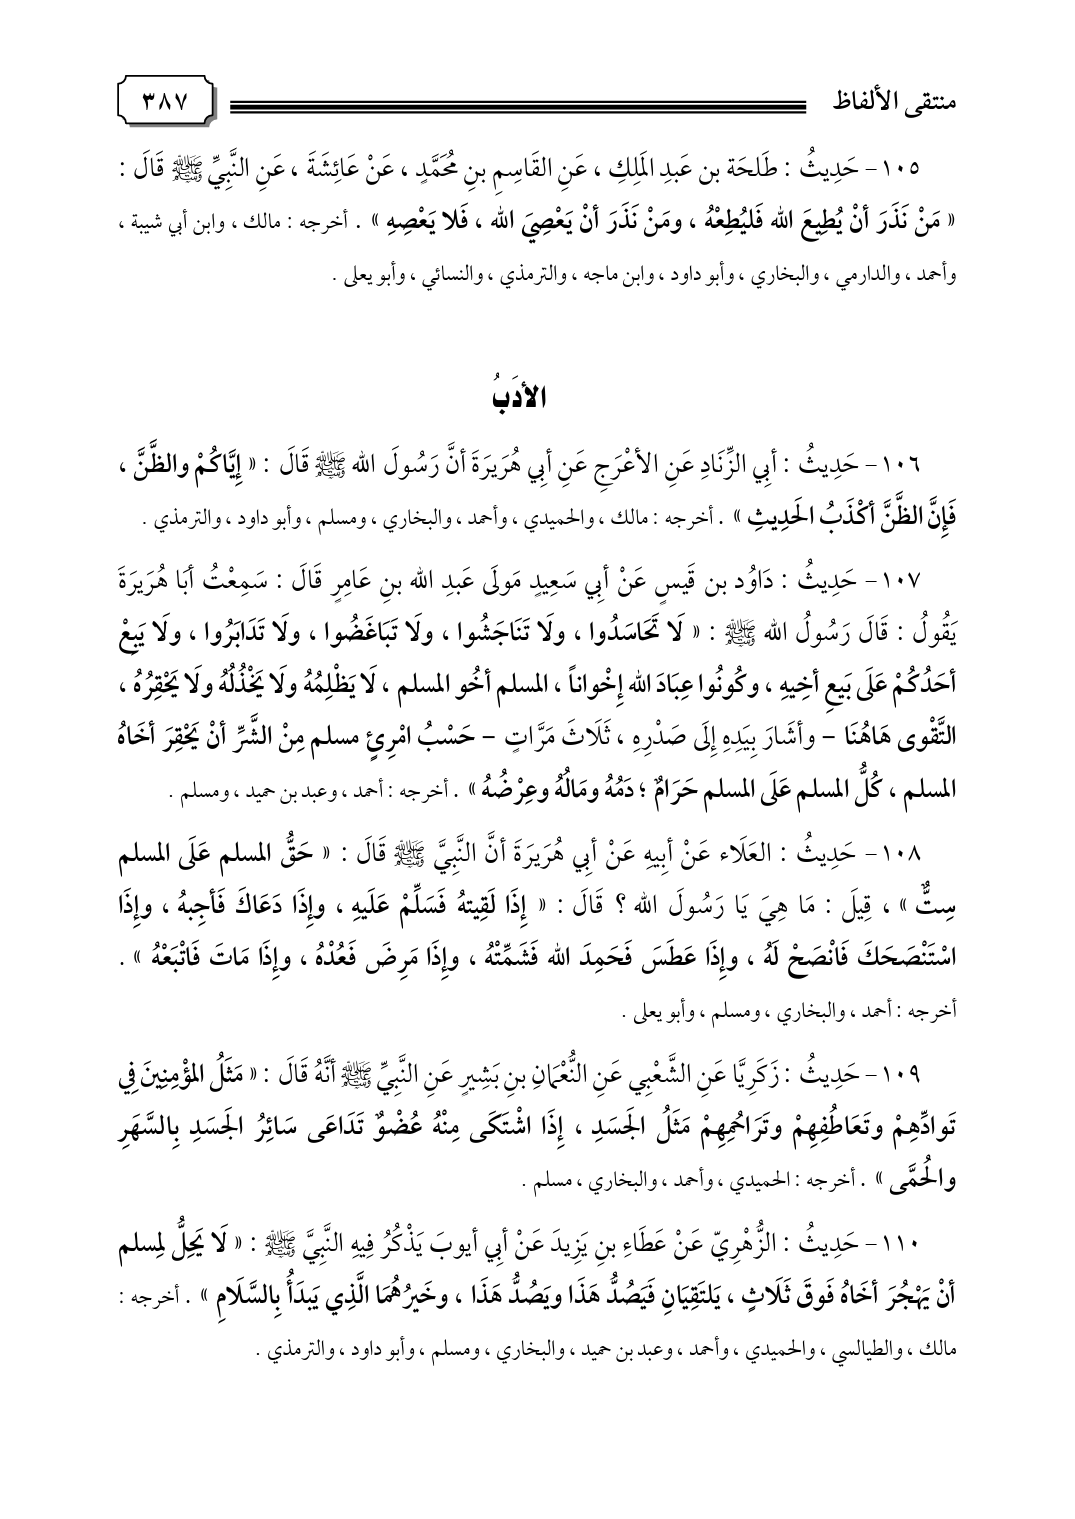 منتقى الألفاظ ٣٨٧
١٠٥- حَدِيثُ : طَلحَة بن عَبدِ المَلِكِ ، عَنِ القَاسِمِ بنِ مُحَمَّدٍ ، عَنْ عَائِشَةَ ، عَنِ النَّبِيِّ ﷺ قَالَ :
« مَنْ نَذَرَ أنْ يُطِيعَ الله فَليُطِعْهُ ، ومَنْ نَذَرَ أنْ يَعْصِيَ الله ، فَلا يَعْصِهِ » . أخرجه : مالك ، وابن أبي شيبة ،
وأحمد ، والدارمي ، والبخاري ، وأبو داود ، وابن ماجه ، والترمذي ، والنسائي ، وأبو يعلى .
الأدَبُ
١٠٦- حَدِيثُ : أبي الزِّنَادِ عَنِ الأعْرَجِ عَنِ أبي هُرَيرَةَ أنَّ رَسُولَ الله ﷺ قَالَ : « إيَّاكُمْ والظَّنَّ ،
فَإنَّ الظَّنَّ أكْذَبُ الحَدِيثِ » . أخرجه : مالك ، والحميدي ، وأحمد ، والبخاري ، ومسلم ، وأبو داود ، والترمذي .
١٠٧- حَدِيثُ : دَاوُد بن قَيسٍ عَنْ أبي سَعِيدٍ مَولَى عَبدِ الله بنِ عَامِرٍ قَالَ : سَمِعْتُ أبَا هُرَيرَةَ
يَقُولُ : قَالَ رَسُولُ الله ﷺ : « لَا تَحَاسَدُوا ، ولَا تَنَاجَشُوا ، ولَا تَبَاغَضُوا ، ولَا تَدَابَرُوا ، ولَا يَبِعْ
أحَدُكُمْ عَلَى بَيعِ أخِيهِ ، وكُونُوا عِبَادَ الله إخْواناً ، المسلم أخُو المسلم ، لَا يَظْلِمُهُ ولَا يَخْذُلُهُ ولَا يَحْقِرُهُ ،
التَّقْوى هَاهُنَا – وأشَارَ بِيَدِهِ إلَى صَدْرِهِ ، ثَلَاثَ مَرَّاتٍ – حَسْبُ امْرِئٍ مسلم مِنْ الشَّرِّ أنْ يَحْقِرَ أخَاهُ
المسلم ، كُلُّ المسلم عَلَى المسلم حَرَامٌ ؛ دَمُهُ ومَالُهُ وعِرْضُهُ » . أخرجه : أحمد ، وعبد بن حميد ، ومسلم .
١٠٨- حَدِيثُ : العَلَاء عَنْ أبيهِ عَنْ أبي هُرَيرَةَ أنَّ النَّبِيَّ ﷺ قَالَ : « حَقُّ المسلم عَلَى المسلم
سِتٌّ » ، قِيلَ : مَا هِيَ يَا رَسُولَ الله ؟ قَالَ : « إذَا لَقِيتهُ فَسَلِّمْ عَلَيهِ ، وإذَا دَعَاكَ فَأجِبهُ ، وإذَا
اسْتَنْصَحَكَ فَانْصَحْ لَهُ ، وإذَا عَطَسَ فَحَمِدَ الله فَشَمِّتْهُ ، وإذَا مَرِضَ فَعُدْهُ ، وإذَا مَاتَ فَاتْبَعْهُ » .
أخرجه : أحمد ، والبخاري ، ومسلم ، وأبو يعلى .
١٠٩- حَدِيثُ : زَكَرِيَّا عَنِ الشَّعْبِي عَنِ النُّعْمَانِ بنِ بَشِيرٍ عَنِ النَّبِيِّ ﷺ أنَّهُ قَالَ : « مَثَلُ المؤْمِنِينَ فِي
تَوادِّهِمْ وتَعَاطُفِهِمْ وتَرَاحُمِهِمْ مَثَلُ الجَسَدِ ، إذَا اشْتَكَى مِنْهُ عُضْوٌ تَدَاعَى سَائِرُ الجَسَدِ بِالسَّهَرِ
والحُمَّى » . أخرجه : الحميدي ، وأحمد ، والبخاري ، مسلم .
١١٠- حَدِيثُ : الزُّهْرِيّ عَنْ عَطَاءِ بنِ يَزِيدَ عَنْ أبي أيوبَ يَذْكُرُ فِيهِ النَّبِيَّ ﷺ : « لَا يَحِلُّ لِمسلم
أنْ يَهْجُرَ أخَاهُ فَوقَ ثَلَاثٍ ، يَلتَقِيَانِ فَيَصُدُّ هَذَا ويَصُدُّ هَذَا ، وخَيرُهُمَا الَّذِي يَبدَأُ بِالسَّلَامِ » . أخرجه :
مالك ، والطيالسي ، والحميدي ، وأحمد ، وعبد بن حميد ، والبخاري ، ومسلم ، وأبو داود ، والترمذي .